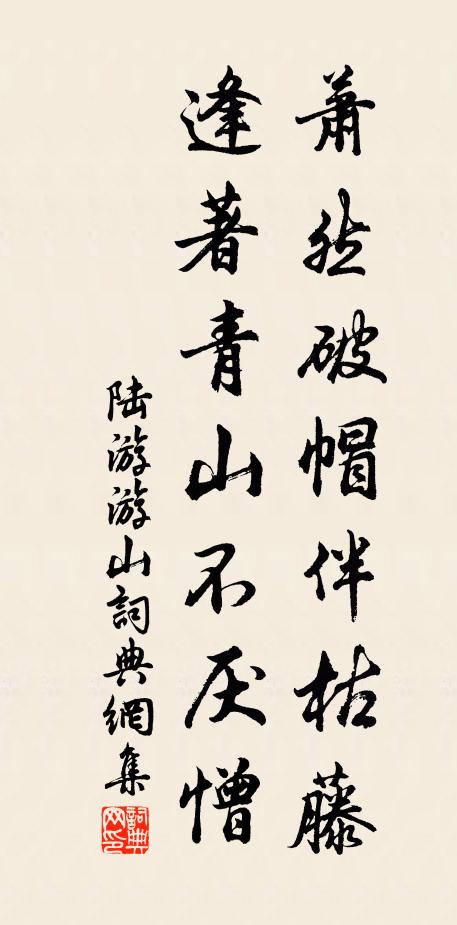 蕭然破帽伴枯藤
逢著青山不厌憎
陆游游山詞典網集
詞典网印